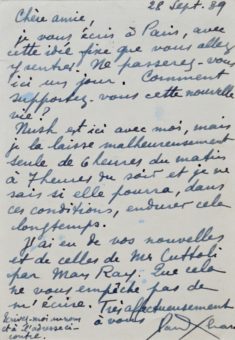 28 Sept. 39
Chère amie,
je vous écris à Paris, avec
cette idée fixe que vous allez
y rentrer. Ne passerez-vous
ici un jour. Comment
supportez-vous cette nouvelle
vie?
Nush est ici avec moi, mais
je la laisse malheureusement
seule de 6 heures du matin
à 7 heures du soir et je ne
sais si elle pourra, dans
ces conditions, endurer cela
longtemps.
J'ai eu de vos nouvelles
et de celles de Mr Cuttoli
par Man Ray. Que cela
ne vous empêche pas de
m'écrire. Très affectueusement
à vous
Ecrivez-moi
et à l'adresse ci-
contre.
Paul Eluard